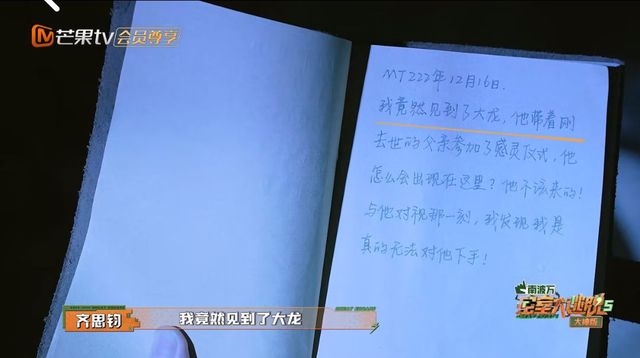 芒果tv 会员尊享
MT222年12月16日.
我竟然见到了大龙，他带着刚
去世的父亲参加了感灵仪式，他
怎么会出现在这里？他不该来的！
与他对视那一刻，我发现我是
真的无法对他下手！
齐思钧 我竟然见到了大龙
南波万
密室大逃脱5
大神版